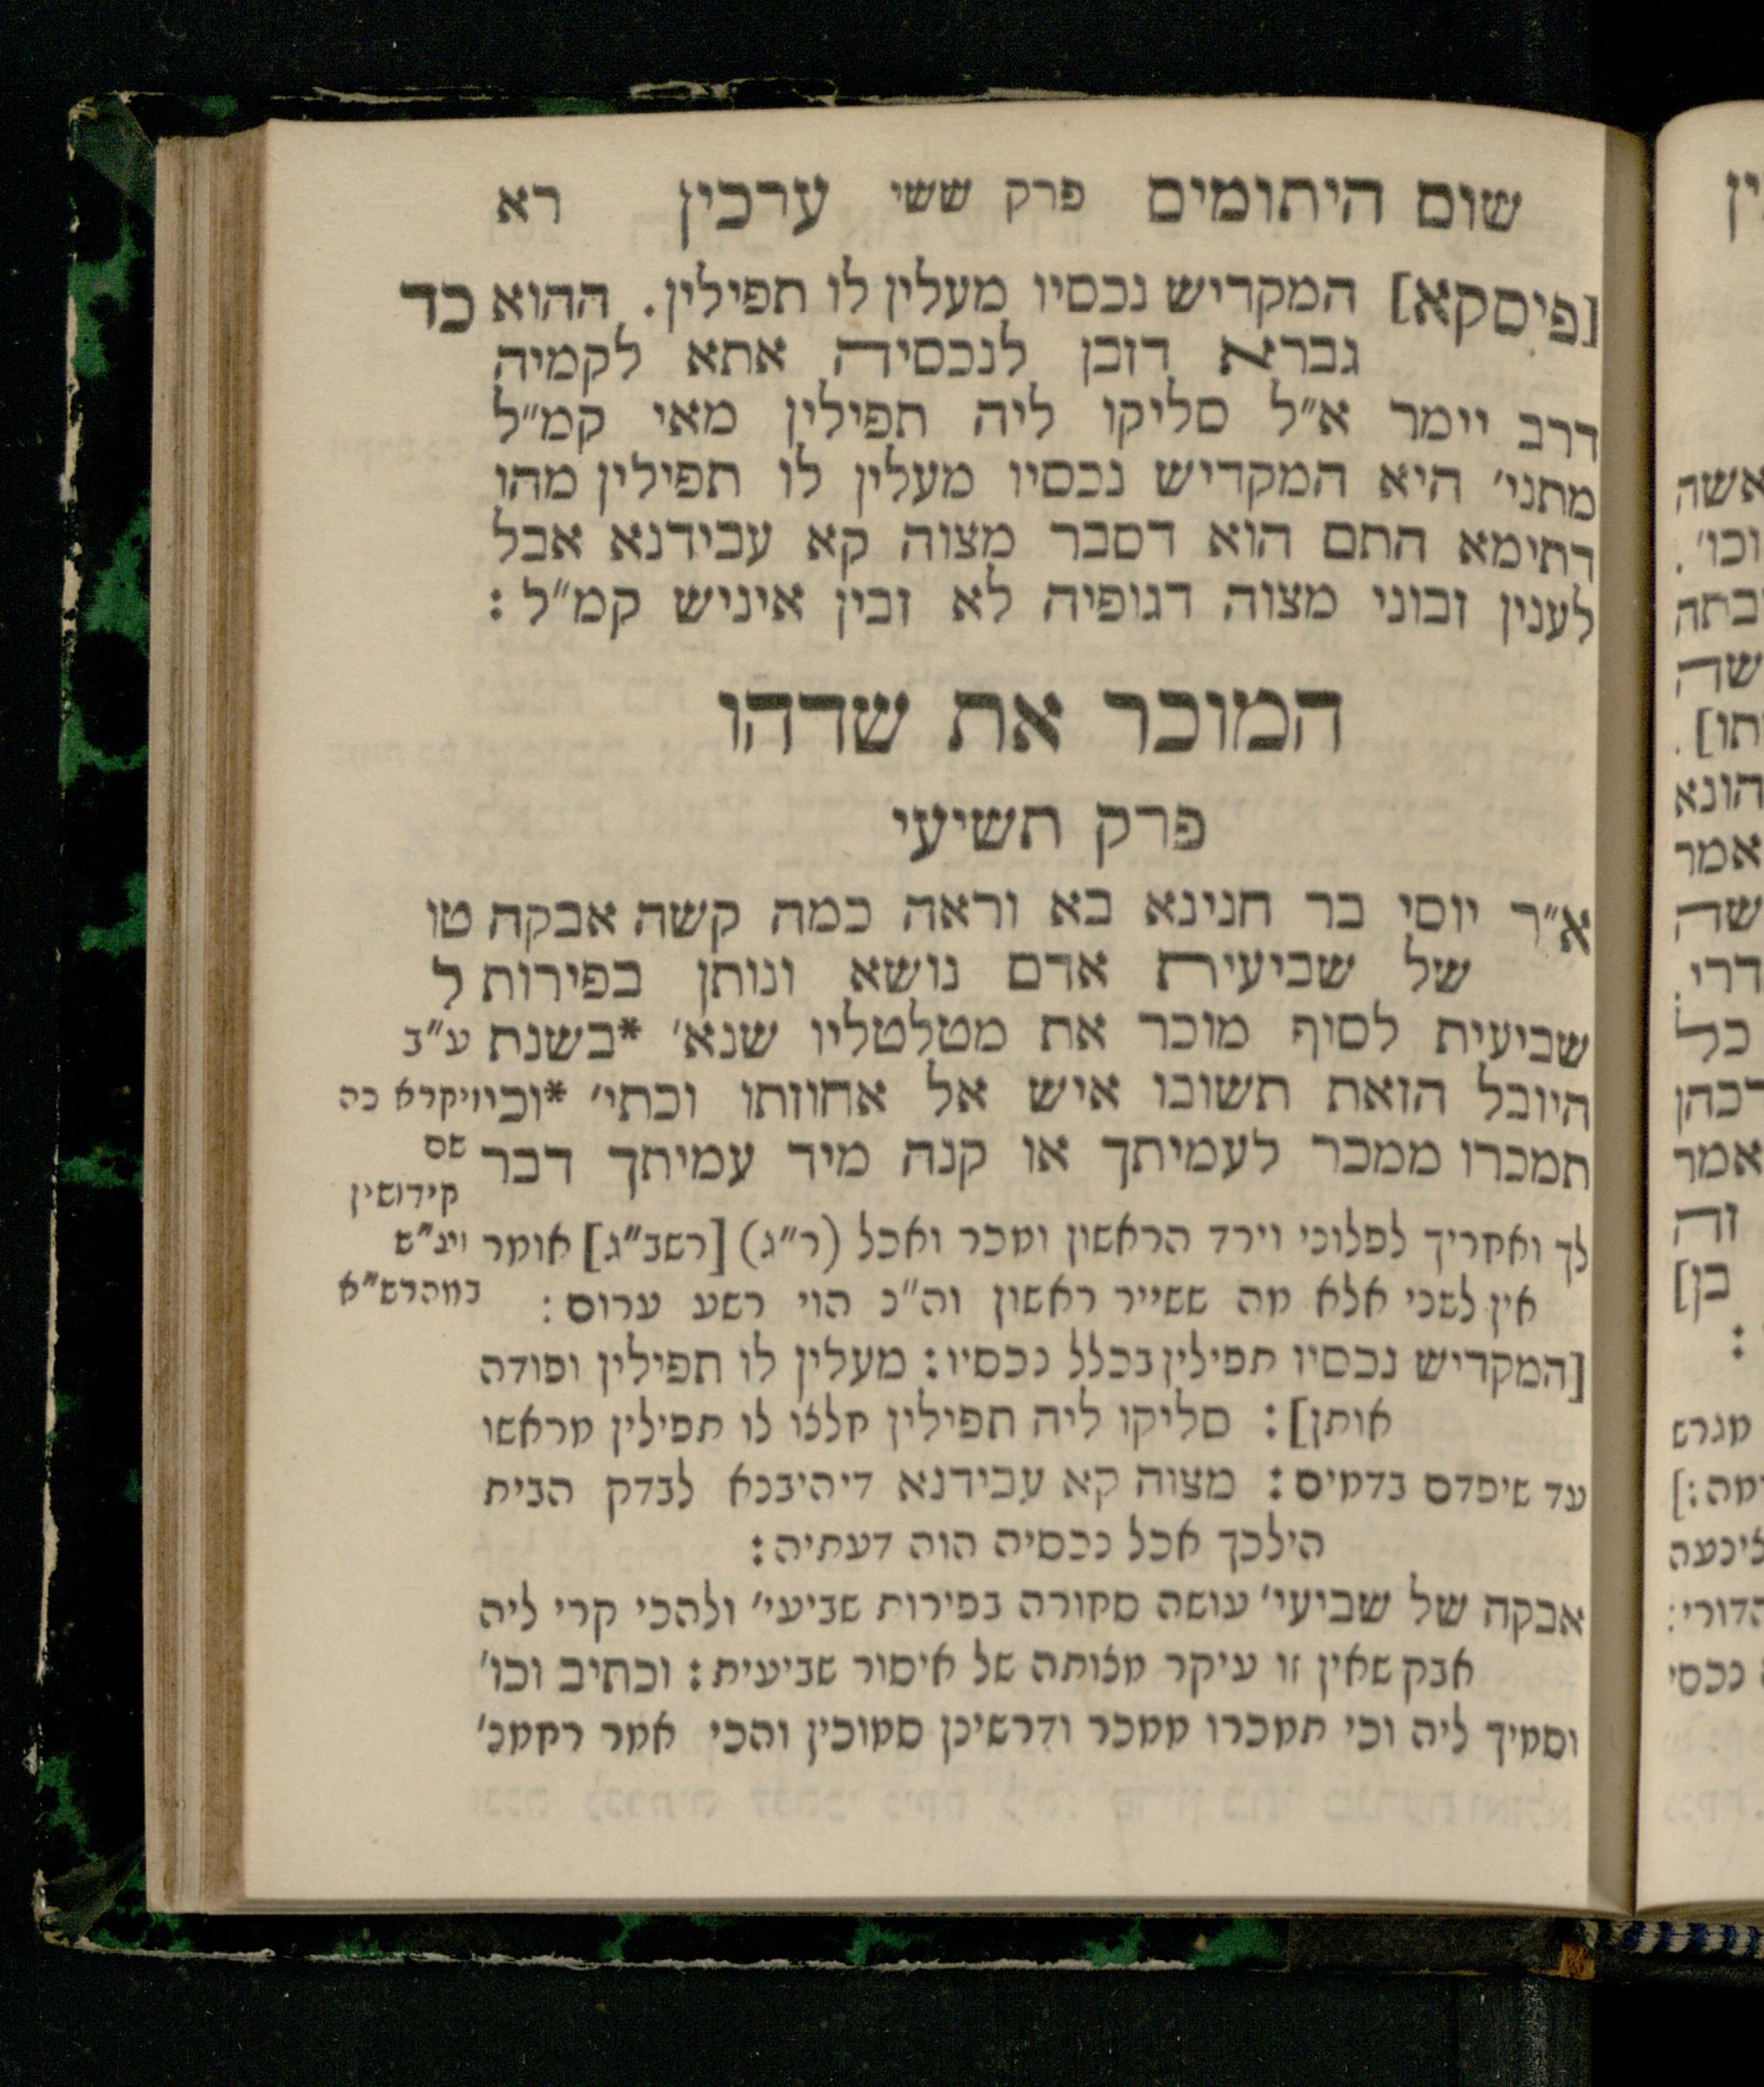 שום היתומים פרק ששי ערכין רא
[פיסקא] המקדיש נכסיו מעלין לו תפילין. ההוא כד
גברא דזבן לנכסיה אתא לקמיה
דרב יימר א״ל סליקו ליה תפילין מאי קמ״ל
מתני׳ היא המקדיש נכסיו מעלין לו תפילין מהו
דתימא התם הוא דסבר מצוה קא עבידנא אבל
לענין זבוני מצוה דגופיה לא זבין איניש קמ״ל :
המוכר את שדהו
פרק תשיעי
א״ר יוסי בר חנינא בא וראה כמה קשה אבקה טו
של שביעית אדם נושא ונותן בפירות ל
שביעית לסוף מוכר את מטלטליו שנא׳ *בשנת ע״ב
היובל הזאת תשובו איש אל אחוזתו וכתי׳ *וכי ויקרא כה
תמכרו ממכר לעמיתך או קנה מיד עמיתך דבר שם
קידושין
לך ואחריך לפלוני וירד הראשון ומכר ואכל (ר״ג) [רשב״ג] אומר ויג״ש
אין לשני אלא מה ששייר ראשון וה״כ הוי רשע ערום : במהרש״א
[המקדיש נכסיו תפילין בכלל נכסיו : מעלין לו תפילין ופודה
אותן] : סליקו ליה תפילין חלצו לו תפילין מראשו
עד שיפדם בדמים : מצוה קא עבידנא דיהיבנא לבדק הבית
הילכך אכל נכסיה הוה דעתיה :
אבקה של שביעי׳ עושה סחורה בפירות שביעי׳ ולהכי קרי ליה
אבק שאין זו עיקר מצותה של איסור שביעית : וכתיב וכו׳
וסמיך ליה וכי תמכרו ממכר ודרשינן סמוכין והכי אמר רחמנ׳